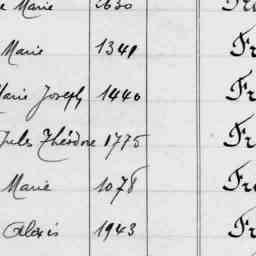 e Marie 2630 Fr
Marie 1341 Fr
Marie Joseph 1440 Fr
Jules Théodore 1775 Fr
Marie 1078 Fr
Alexis 1943 Fr